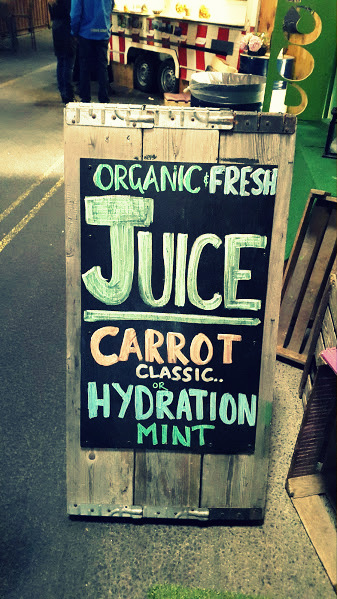 ORGANIC & FRESH
JUICE
CARROT
CLASSIC..
OR
HYDRATION
MINT